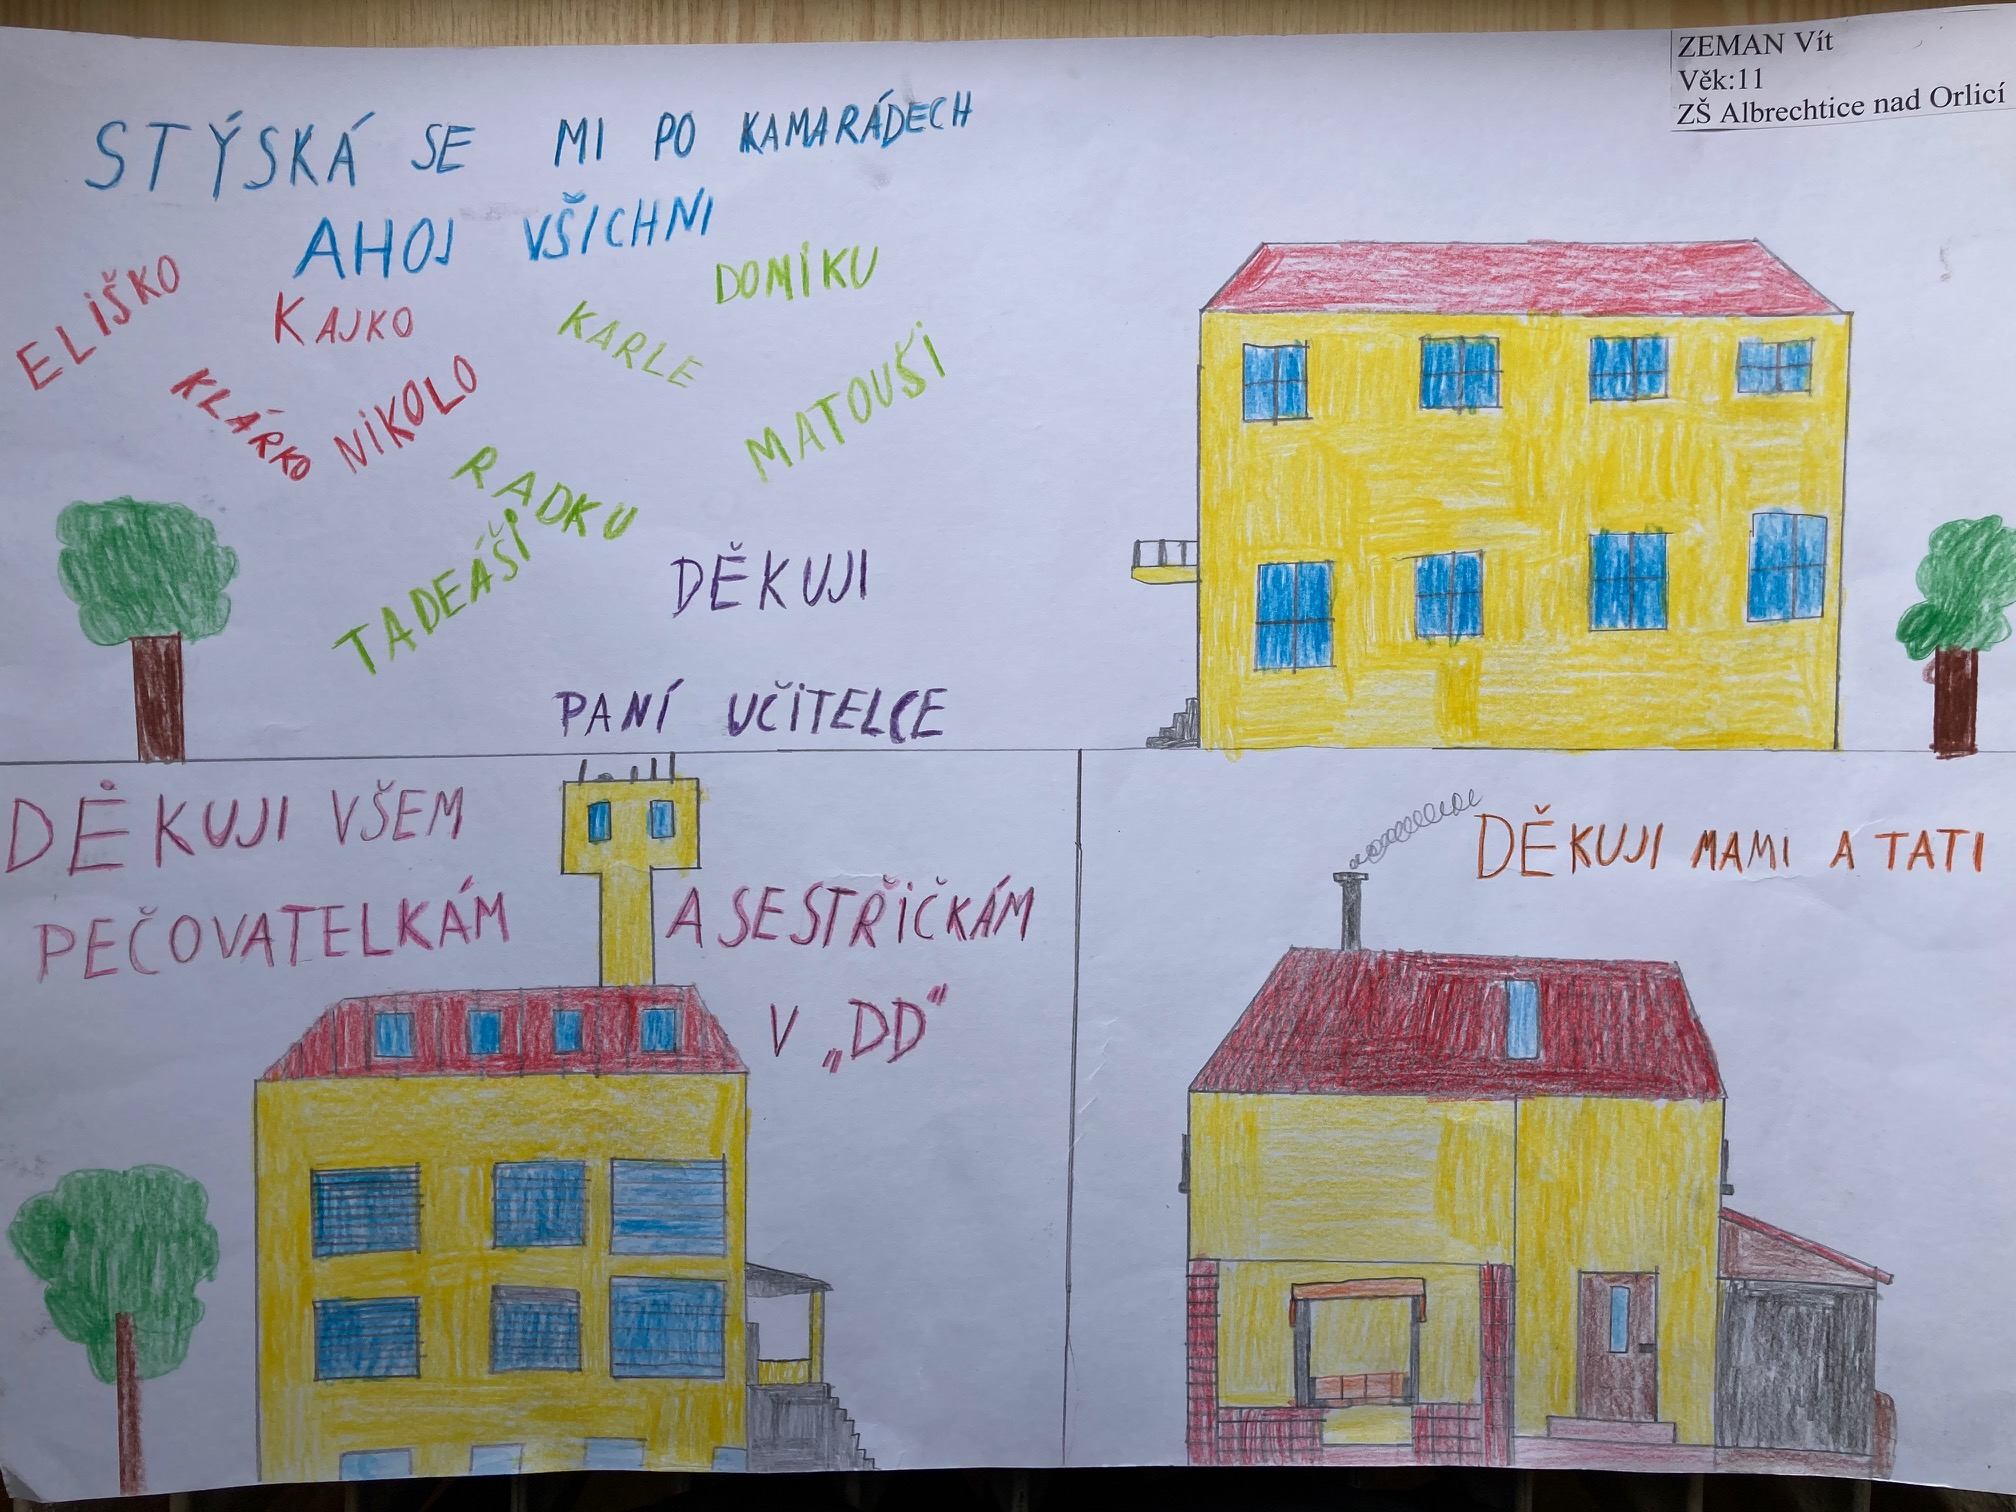 ZEMAN Vít
Věk:11
ZŠ Albrechtice nad Orlicí
STÝSKÁ SE MI PO KAMARÁDECH
AHOJ VŠICHNI
ELIŠKO
KAJKO
KLÁRKO
NIKOLO
KARLE
DOMIKU
MATOUŠI
RADKU
TADEÁŠI
DĚKUJI
PANÍ UČITELCE
DĚKUJI VŠEM
PEČOVATELKÁM
A SESTŘIČKÁM
V „DD“
DĚKUJI MAMI A TATI